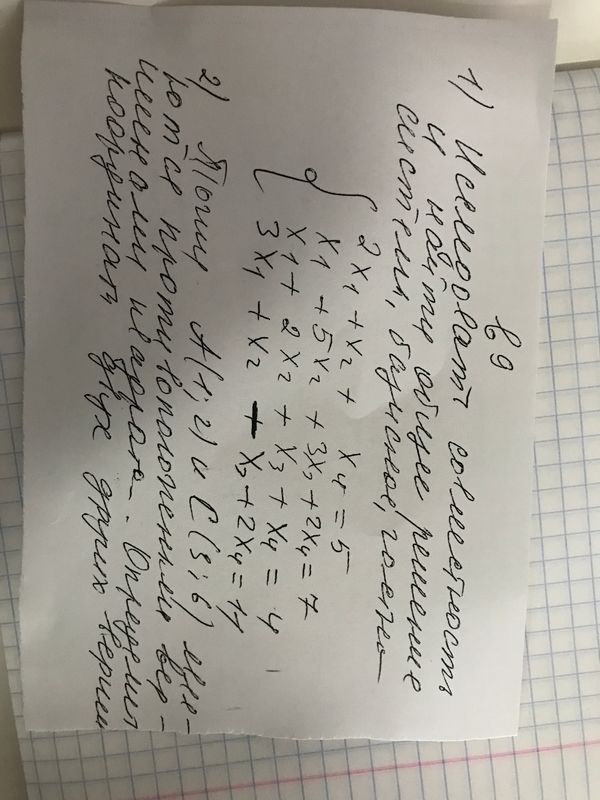 в 9
1) Исследоват совместность
и найти общее решение
системы, базисное, частно
{ 2x1 + x2 + x4 = 5
x1 + 5x2 + 3x3 + 2x4 = 7
x1 + 2x2 + x3 + x4 = 4
3x1 + x2 + x3 + 2x4 = 11
2) Точки A(1; 2) и C(3; 6) явля-
ются противоположными вер-
шинами квадрата. Определит
координат двух других верши